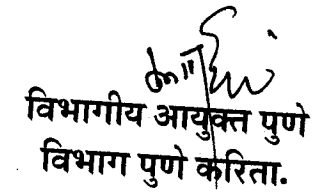 विभागीय आयुक्त पुणे
विभाग पुणे करिता.